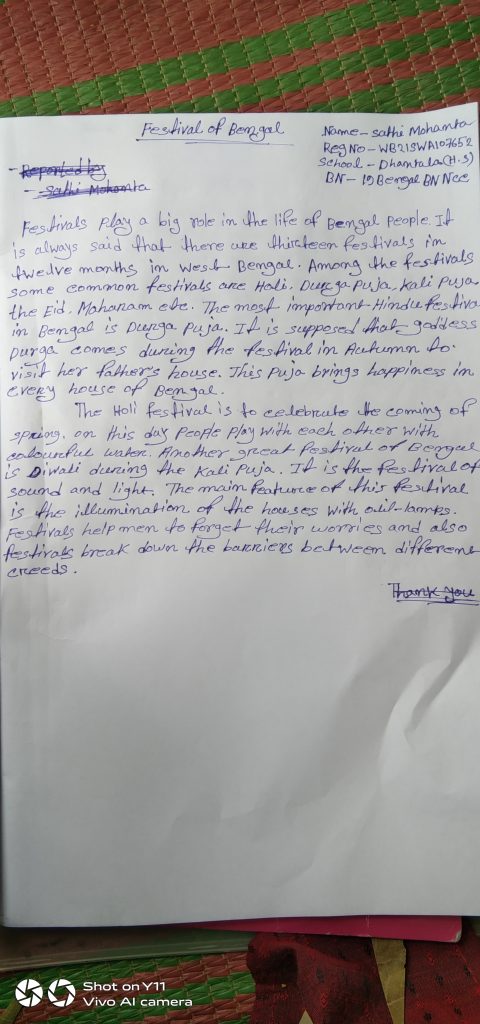 Festival of Bengal
Name - Sathi Mohanta
Reg No - WB21SWA107652
School - Dhantala (H.S)
BN - 19 Bengal BN Ncc
- Reported by
- Sathi Mohanta
Festivals Play a big role in the life of Bengal People. It
is always said that there are thirteen festivals in
twelve months in West Bengal. Among the festivals
some common festivals are Holi, Durga Puja, Kali Puja
the Eid, Maharam etc. The most important Hindu festiva
in Bengal is Durga Puja. It is supposed that goddess
Durga comes during the festival in Autumn to
visit her father's house. This Puja brings happiness in
every house of Bengal.
The Holi festival is to celebrate the coming of
spring, on this day People Play with each other with
colourful water. Another great Festival of Bengal
is Diwali during the Kali Puja. It is the festival of
sound and light. The main feature of this festival
is the illumination of the houses with oil-lamps.
Festivals help men to forget their worries and also
festivals break down the barriers between different
creeds.
Thank you
Shot on Y11
Vivo AI camera